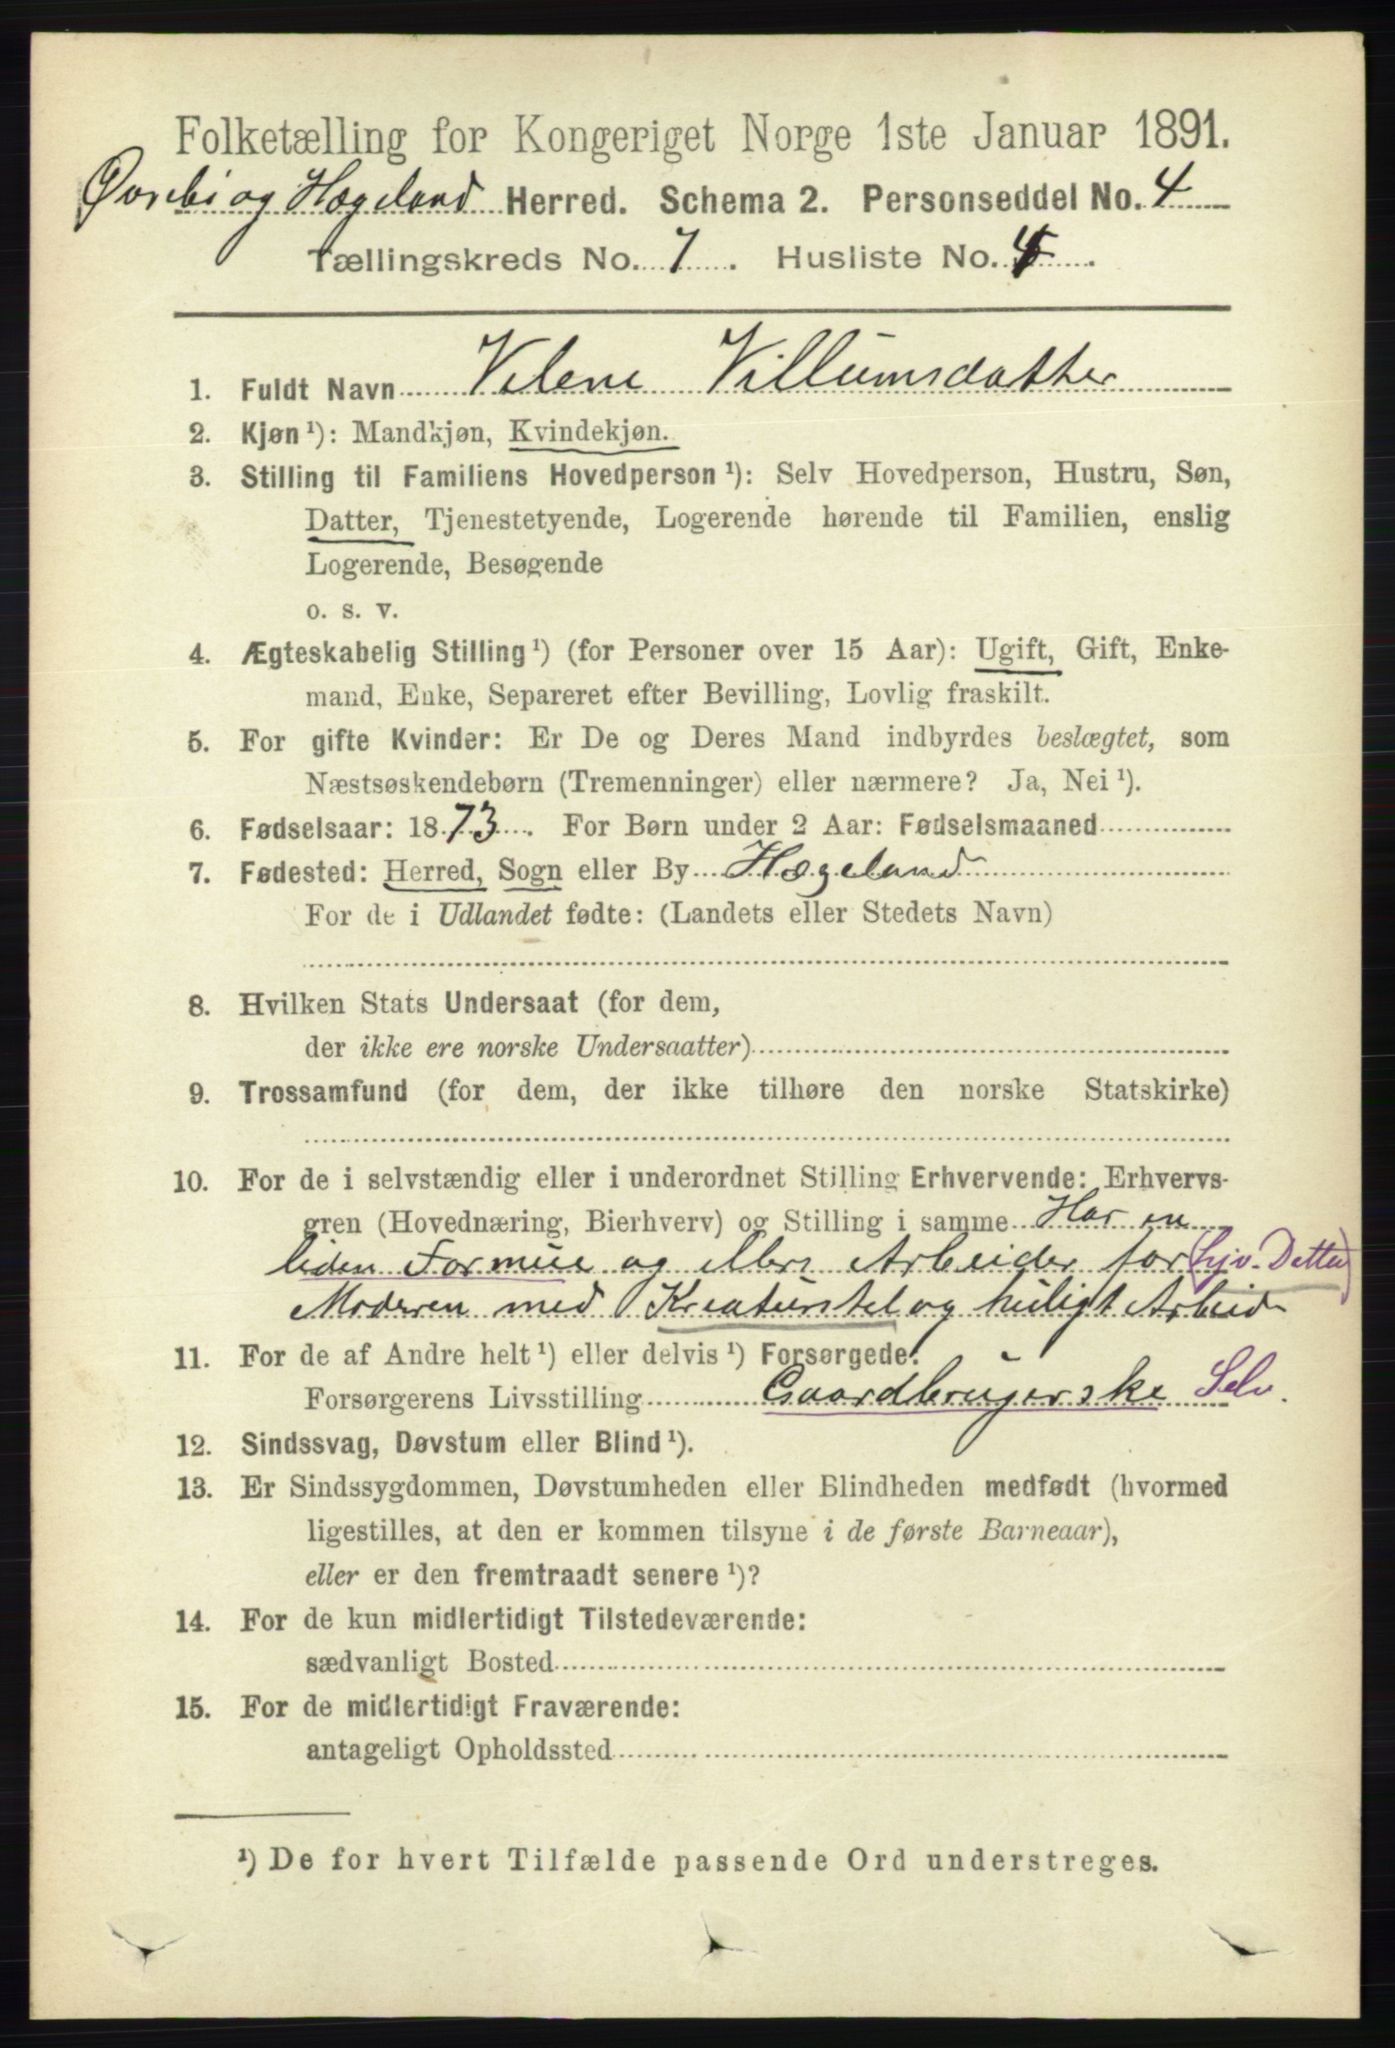 Folketælling for Kongeriget Norge 1ste Januar 1891.
Øvrebi og Hægeland Herred. Schema 2. Personseddel No. 4
Tællingskreds No. 7. Husliste No. 4.
1. Fuldt Navn Velene Villumsdatter
2. Kjøn ¹): Mandkjøn, Kvindekjøn.
3. Stilling til Familiens Hovedperson ¹): Selv Hovedperson, Hustru, Søn,
Datter, Tjenestetyende, Logerende hørende til Familien, enslig
Logerende, Besøgende
o. s. v.
4. Ægteskabelig Stilling ¹) (for Personer over 15 Aar): Ugift, Gift, Enke-
mand, Enke, Separeret efter Bevilling, Lovlig fraskilt.
5. For gifte Kvinder: Er De og Deres Mand indbyrdes beslægtet, som
Næstsøskendebørn (Tremenninger) eller nærmere? Ja, Nei ¹).
6. Fødselsaar: 1873. For Børn under 2 Aar: Fødselsmaaned
7. Fødested: Herred, Sogn eller By Hægeland
For de i Udlandet fødte: (Landets eller Stedets Navn)
8. Hvilken Stats Undersaat (for dem,
der ikke ere norske Undersaatter)
9. Trossamfund (for dem, der ikke tilhøre den norske Statskirke)
10. For de i selvstændig eller i underordnet Stilling Erhvervende: Erhvervs-
gren (Hovednæring, Bierhverv) og Stilling i samme Har en
liden Formue og ellers Arbeider for (Tjv. Datter)
Moderen med Kreaturstel og huligt Arbeid
11. For de af Andre helt ¹) eller delvis ¹) Forsørgede:
Forsørgerens Livsstilling Gaardbrugerske Selv.
12. Sindssvag, Døvstum eller Blind ¹).
13. Er Sindssygdommen, Døvstumheden eller Blindheden medfødt (hvormed
ligestilles, at den er kommen tilsyne i de første Barneaar),
eller er den fremtraadt senere ¹)?
14. For de kun midlertidigt Tilstedeværende:
sædvanligt Bosted
15. For de midlertidigt Fraværende:
antageligt Opholdssted
¹) De for hvert Tilfælde passende Ord understreges.